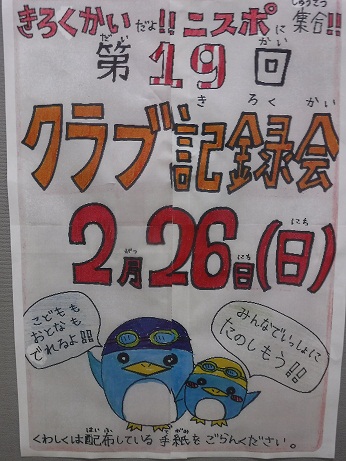 きろくかいだよ!!ニスポに集合!!
第19回
クラブ記録会
2月26日(日)
こどもも
おとなも
でれるよ!!
みんなでいっしょに
たのしもう!!
くわしくは配布している手紙をごらんください。